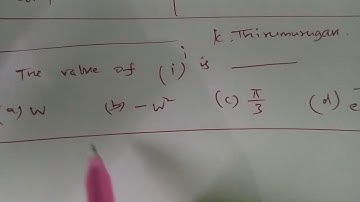 K. Thirumurugan.
The value of (i)^i is ______
(a) w (b) - w² (c) π/3 (d) e